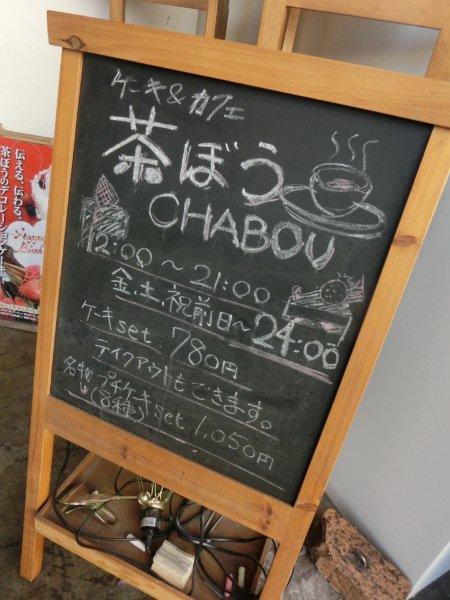 ケーキ & カフェ
茶ぼう
CHABOU
12:00 ～ 21:00
金、土、祝前日～24:00
ケーキset 780円
テイクアウトもできます。
名物 プチケーキ
(8種) set 1,050円
伝える、伝わる、
茶ぼうのデコレーションケーキ